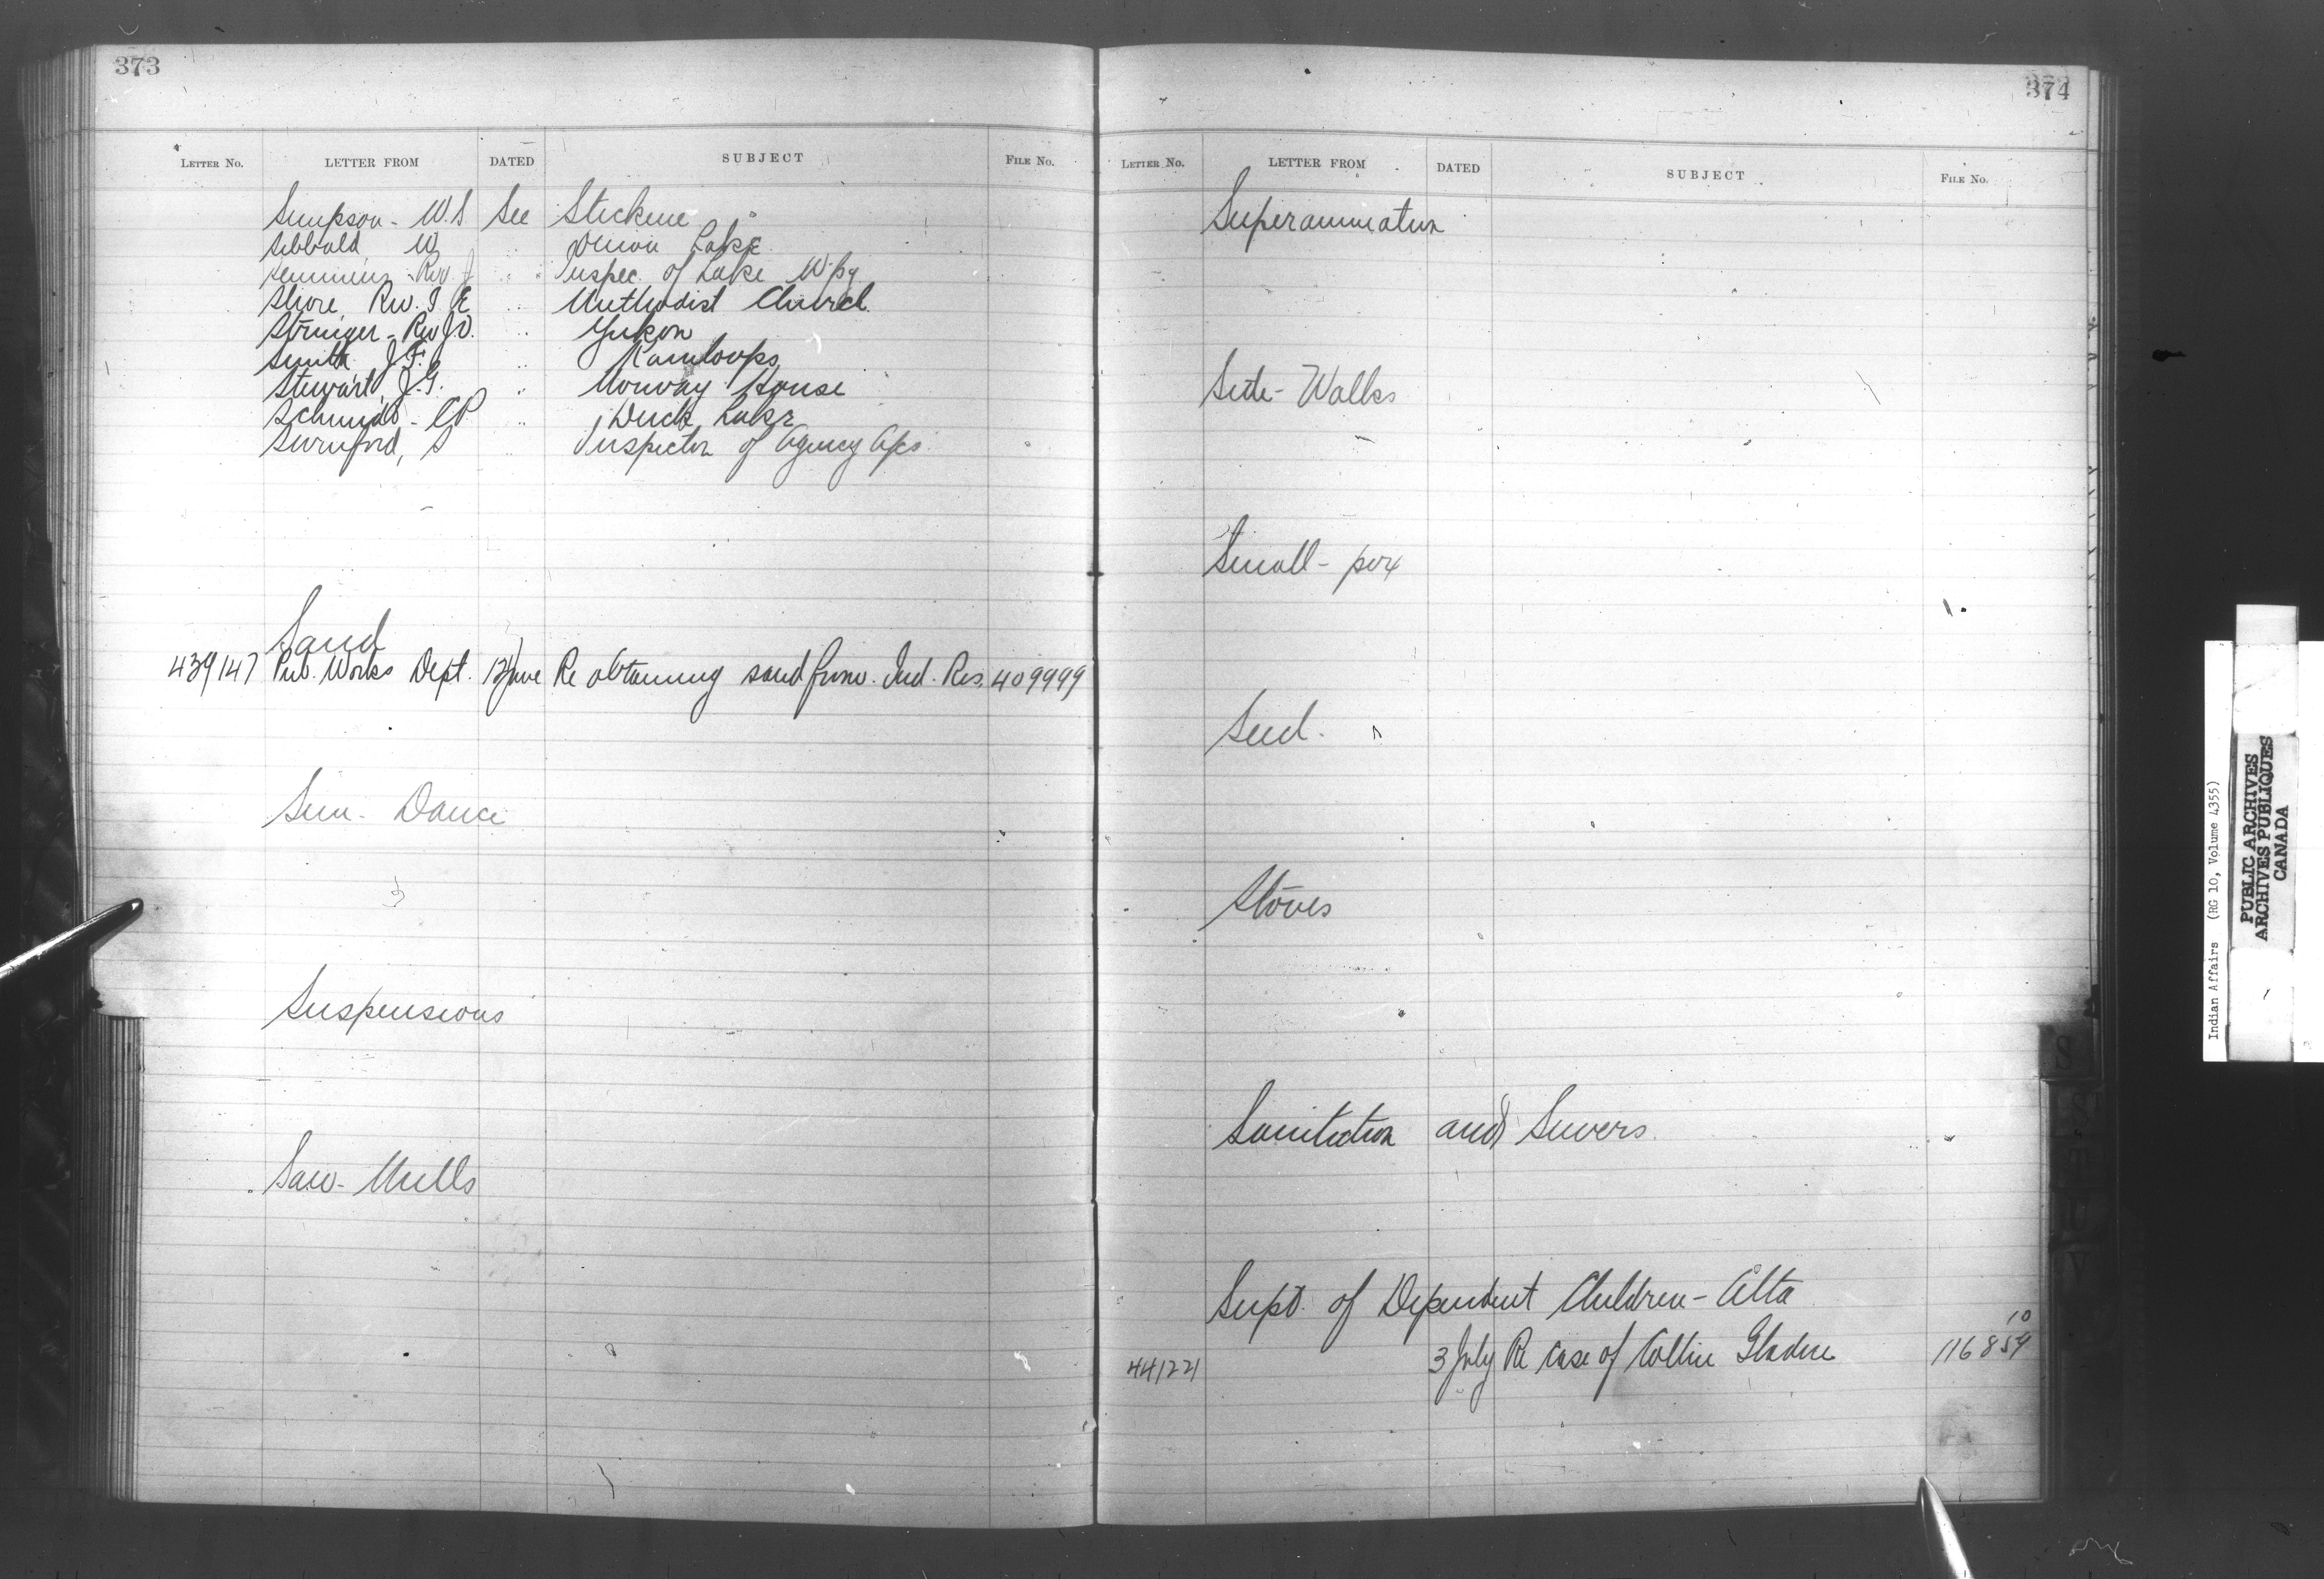 373
LETTER No. LETTER FROM DATED SUBJECT FILE No.
Simpson - W.S See Stickine
Sibbald W " Onion Lake
Semmens - Rev. J " Inspec. of Lake Wpg
Shore, Rev. T E " Methodist Church
Stringer - Rev J O. " Yukon
Smith J.F. " Kamloops
Stewart, J.G. " Norway House
Schmidt - CP " Duck Lake
Swinford, S " Inspector of Agency Ofcs.
Sand
439147 Pub. Works Dept. 12 June Re obtaining sand from Ind. Res. 409999
Sun - Dance
Suspensions
Saw - Mills
374
LETTER No. LETTER FROM DATED SUBJECT FILE No.
Superannuation
Side - Walks
Small - pox
Seed.
Stoves
Sanitation and Sewers.
Supt. of Dependent Children - Alta
441221 3 July Re case of Collin Gladue 116859 10
S
T
U
V
Indian Affairs (RG 10, Volume 4355)
PUBLIC ARCHIVES
ARCHIVES PUBLIQUES
CANADA